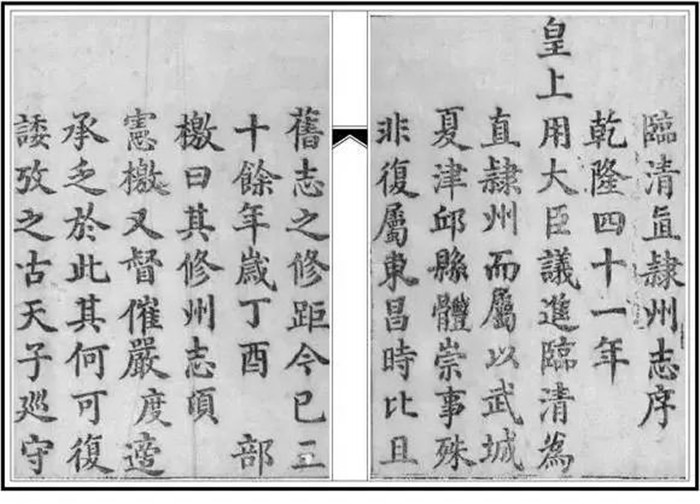 臨清直隸州志序
乾隆四十一年
皇上用大臣議進臨清為
直隸州而屬以武城
夏津邱縣體崇事殊
非復屬東昌時比且
舊志之修距今已二
十餘年歲丁酉 部
檄曰其修州志頃
憲檄又督催嚴度適
承乏於此其何可復
諉攷之古天子巡守